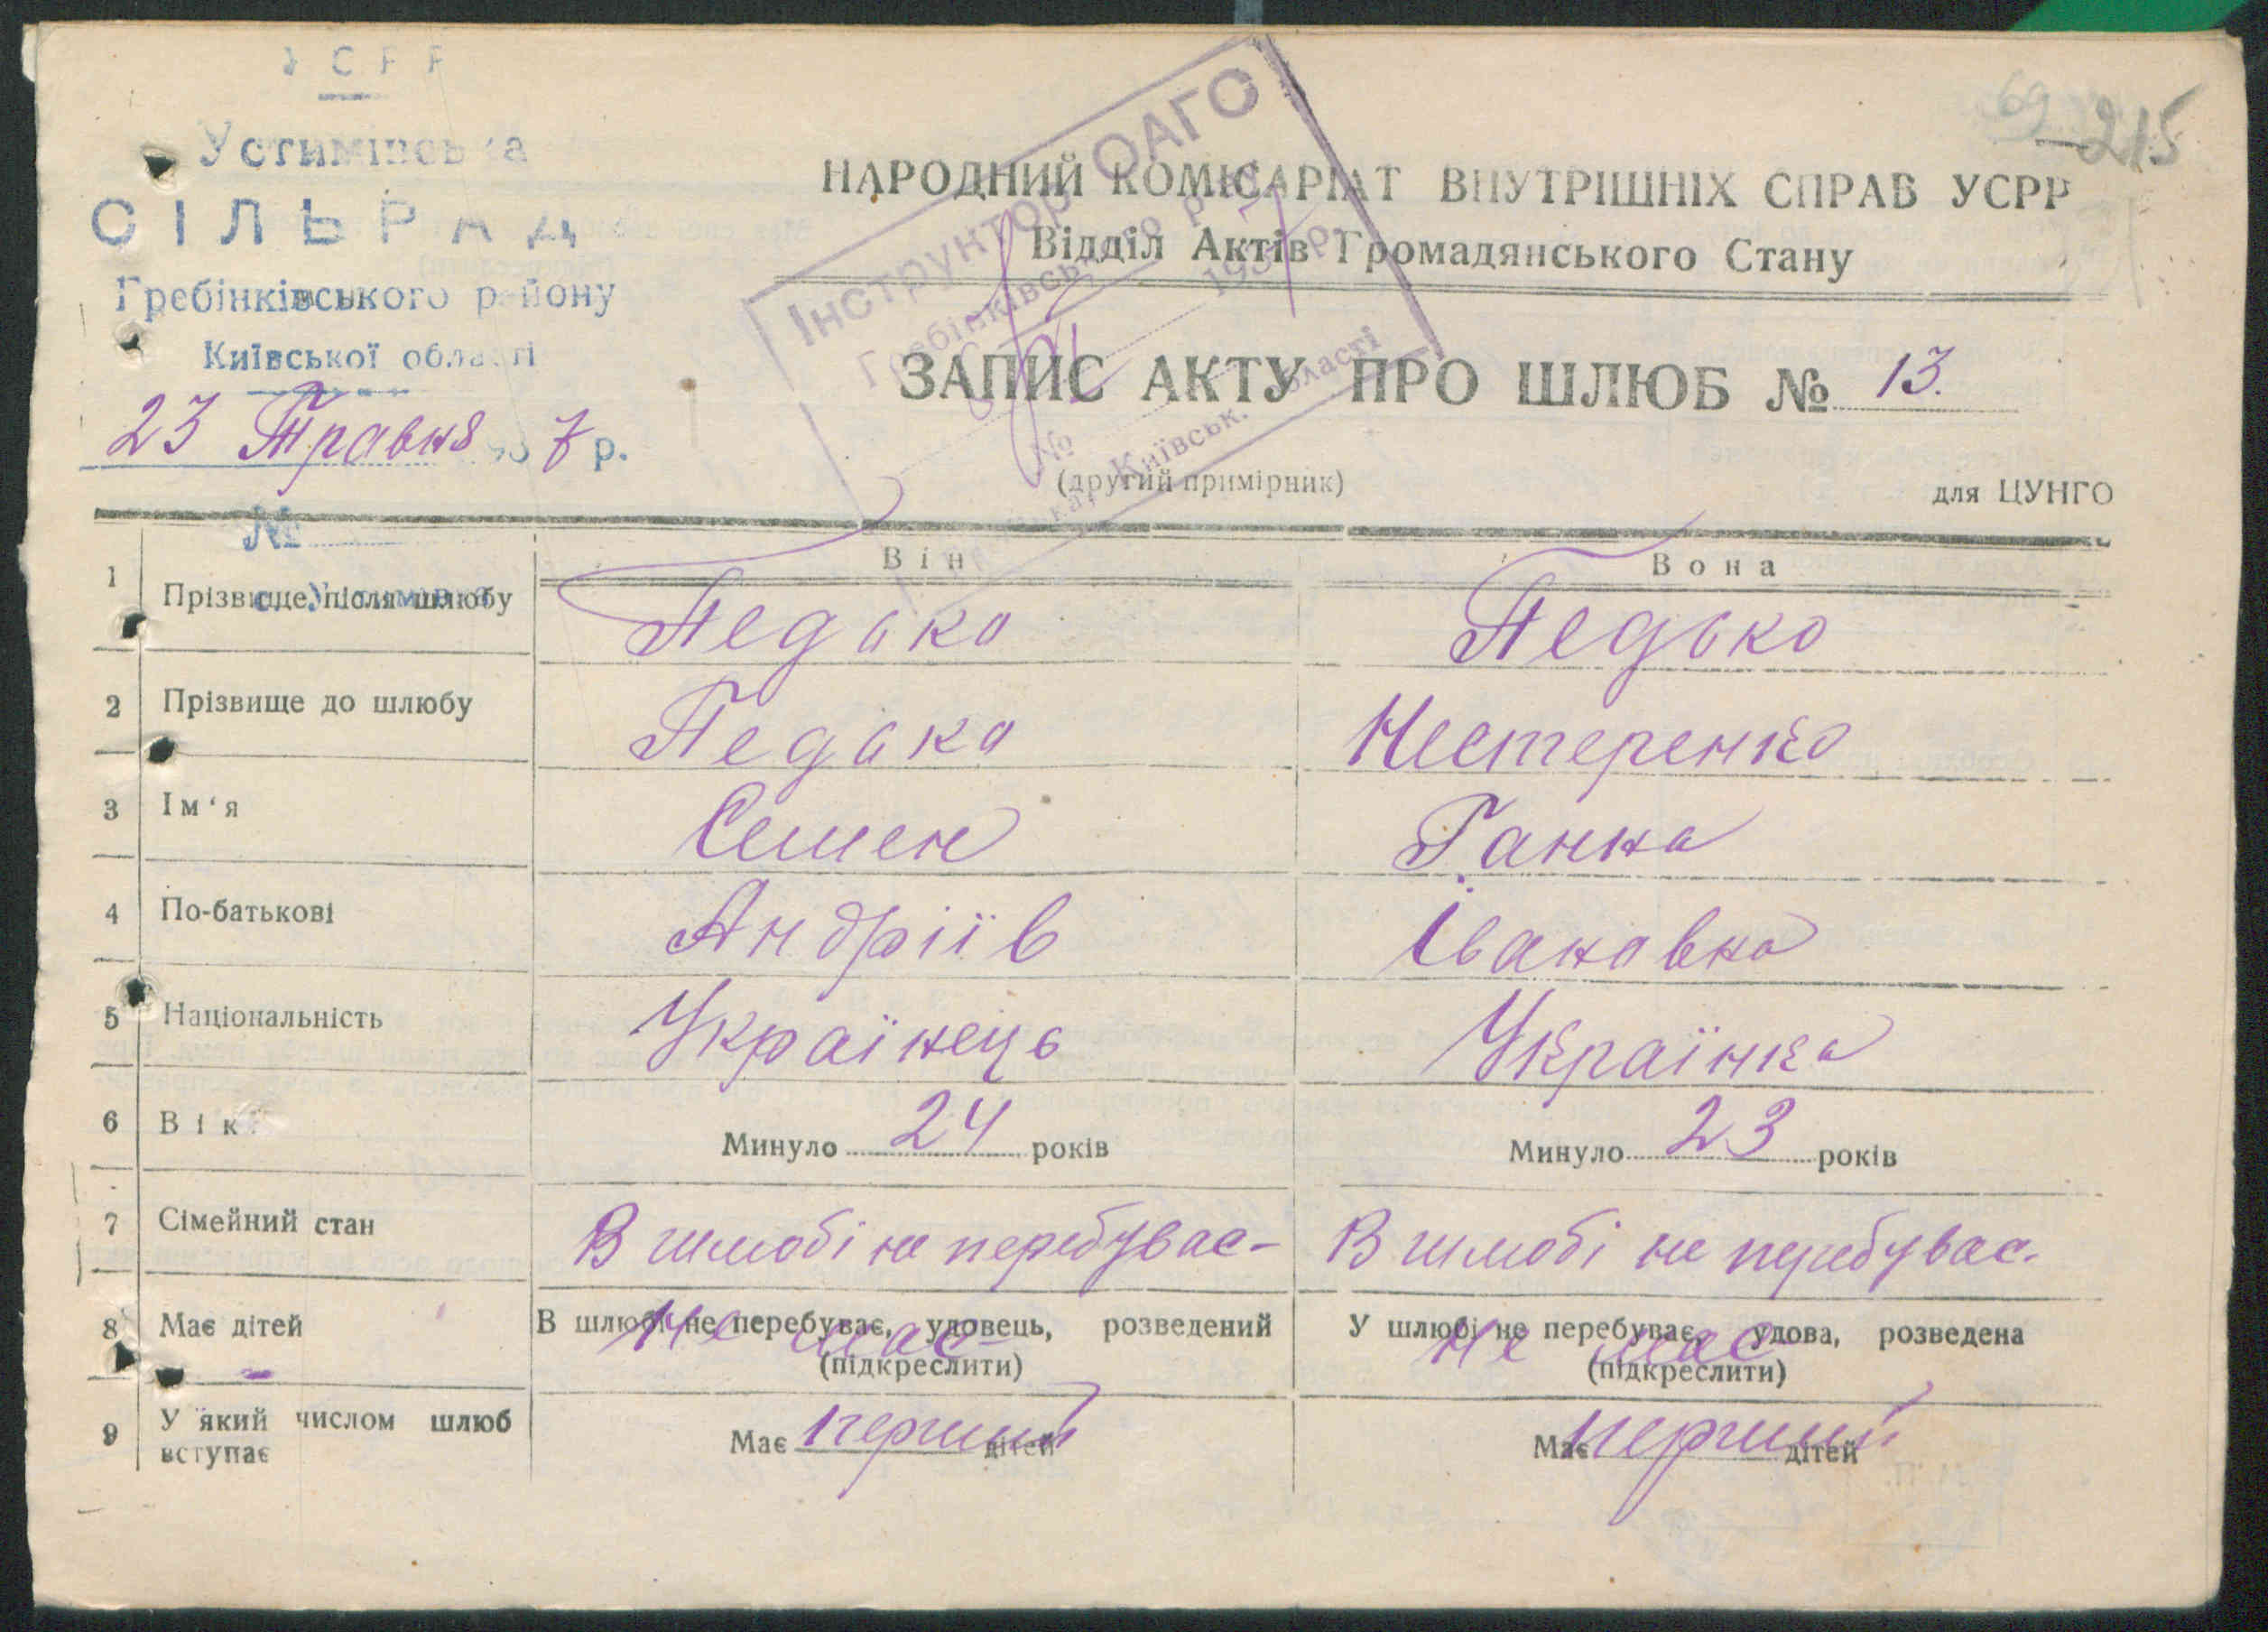 УСРР
Устимівська
СІЛЬРАДА
Гребінківського району
Київської області
23 Травня 1937 р.
№
с. Устимівка
69 215
Інструктор ОАГО
Гребінківського р.
193 р.
№
Київськ. області
НАРОДНИЙ КОМІСАРІАТ ВНУТРІШНІХ СПРАВ УСРР
Відділ Актів Громадянського Стану
ЗАПИС АКТУ ПРО ШЛЮБ № 13.
(другий примірник)
для ЦУНГО
Він Вона
1 Прізвище після шлюбу Педько Педько
2 Прізвище до шлюбу Педько Нестеренко
3 Ім'я Семен Ганна
4 По-батькові Андріїв Івановна
5 Національність Українець Українка
6 Вік Минуло 24 років Минуло 23 років
7 Сімейний стан В шлюбі не перебуває- В шлюбі не перебуває.
8 Має дітей В шлюбі не перебуває, удовець, розведений У шлюбі не перебуває, удова, розведена
Не має Не має
(підкреслити) (підкреслити)
9 У який числом шлюб вступає Має перший дітей Має перший дітей